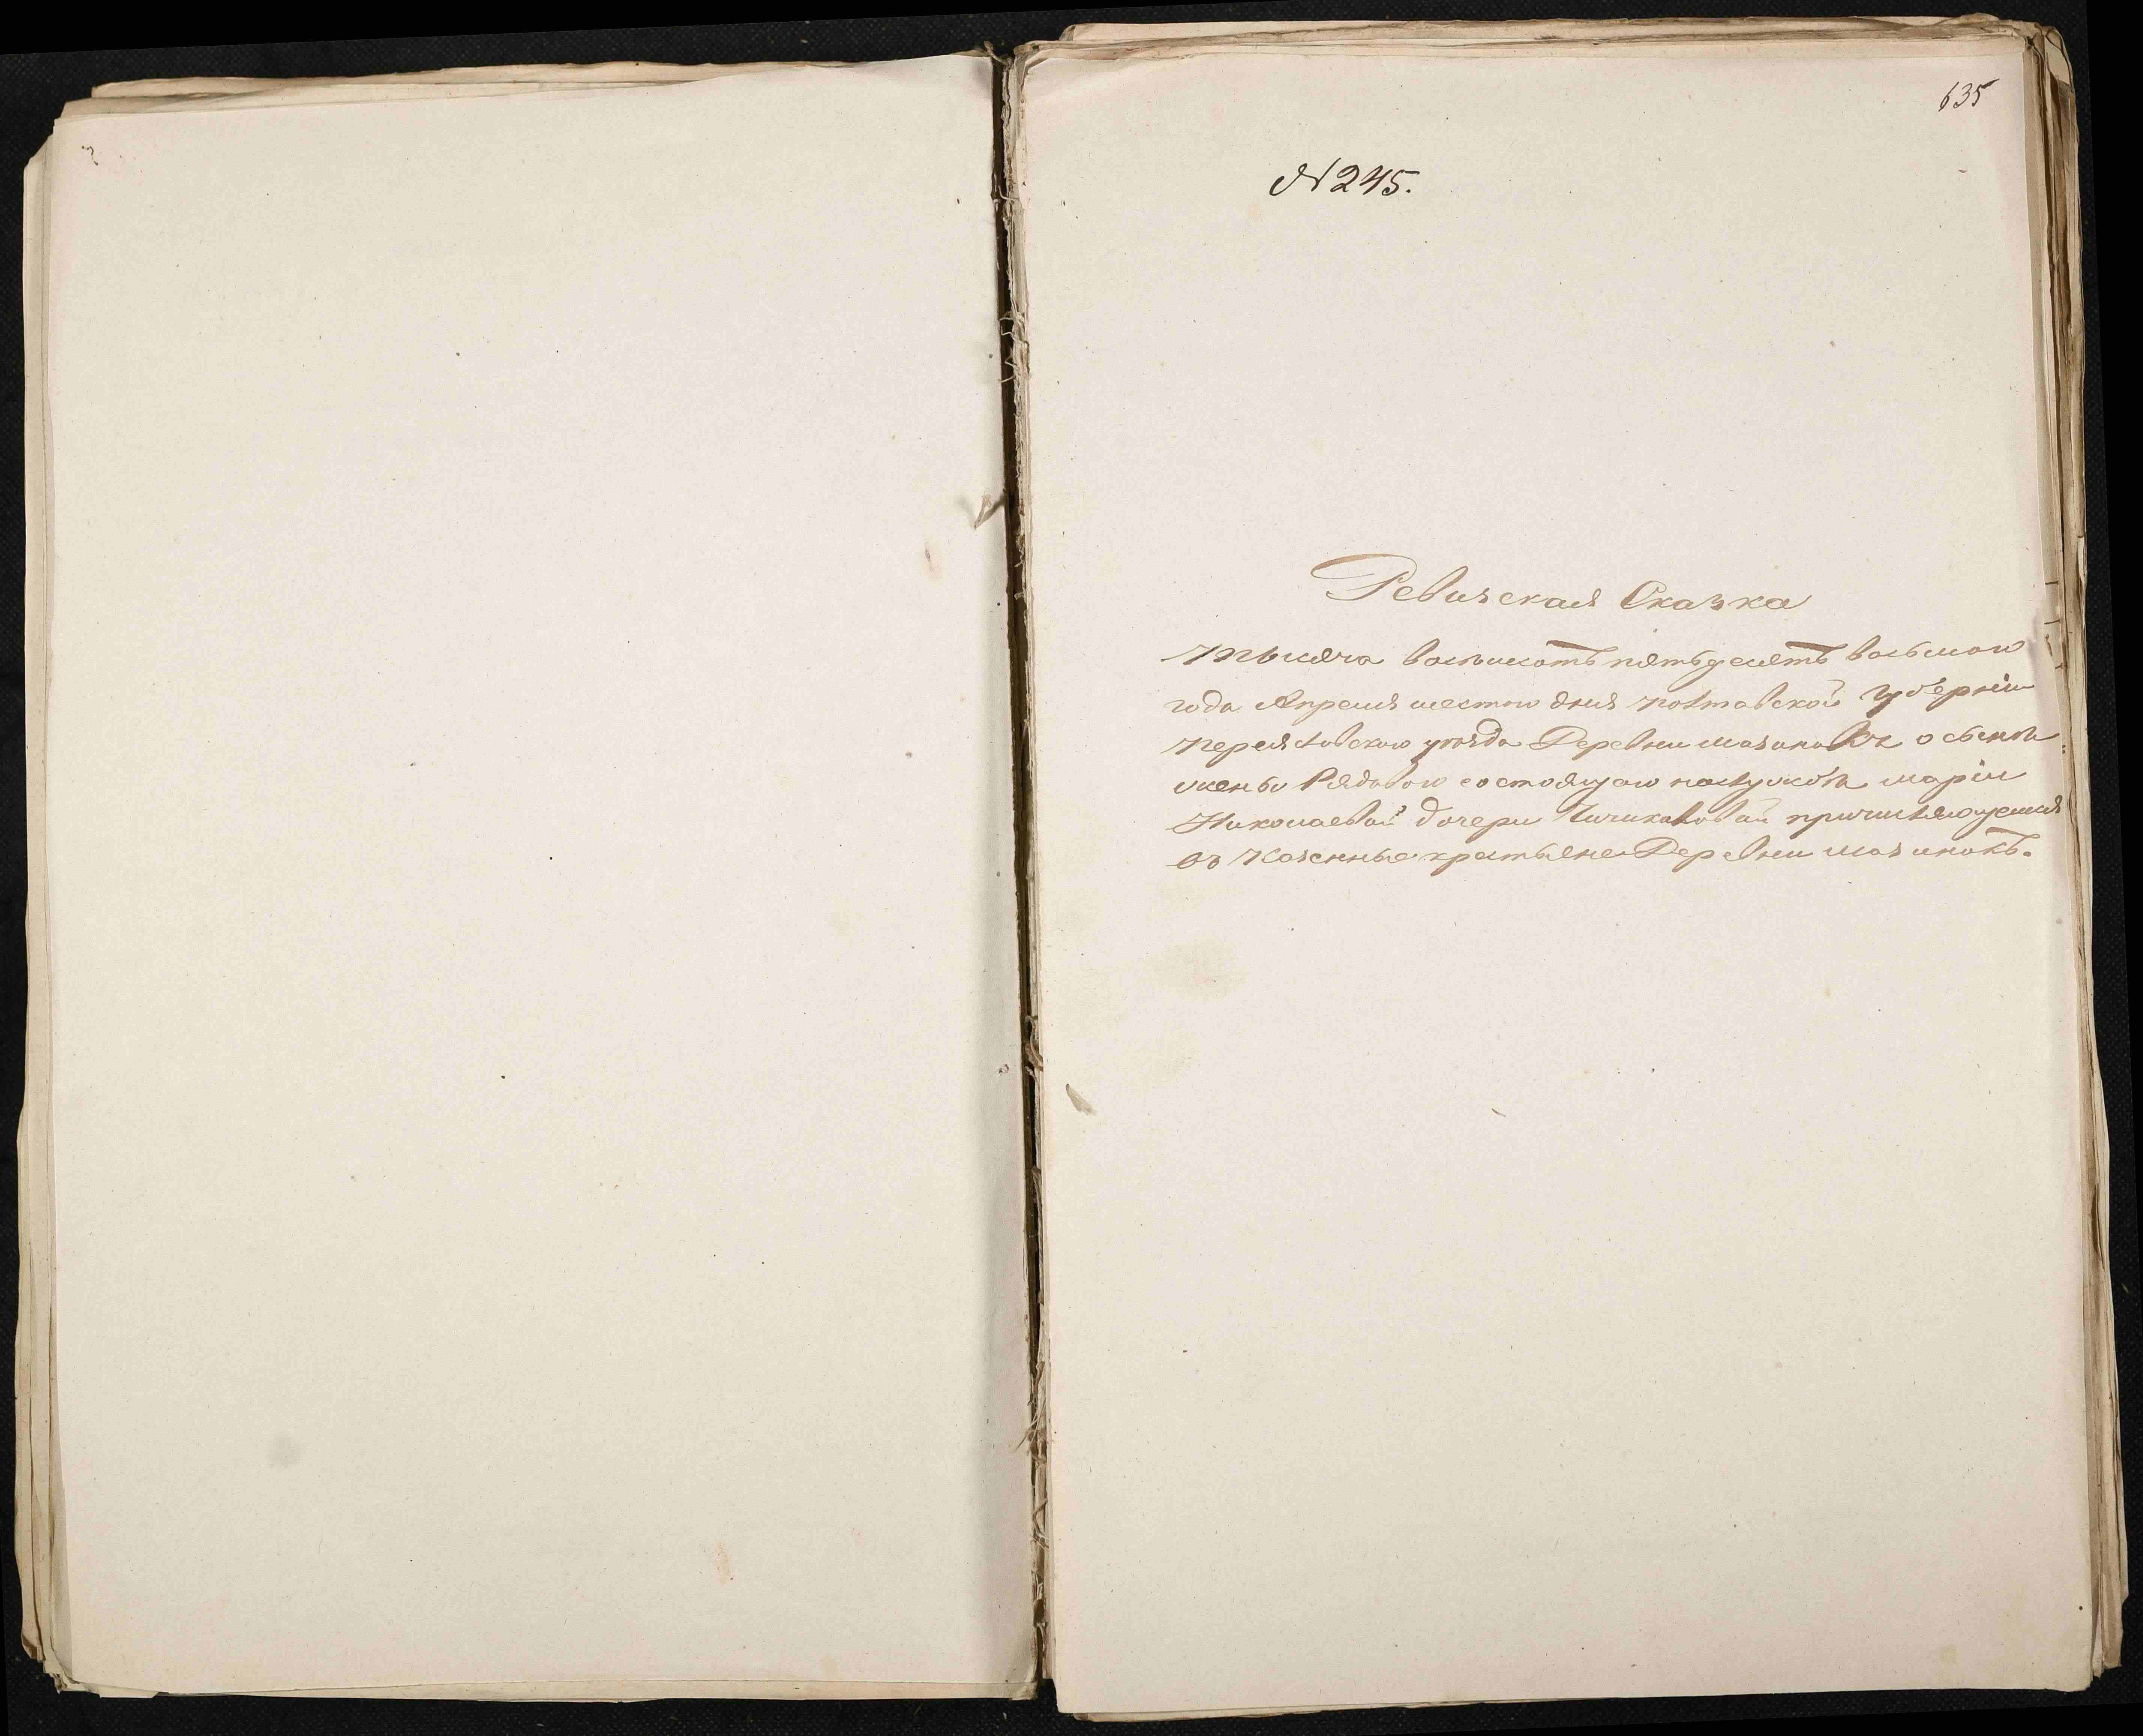 635
N 245.
Ревизская Сказка
тысяча восемсотъ пятьдесятъ восьмого
года Апреля шестого дня Полтавской Губерніи
Переяславского уезда Деревни Мазинокъ о сыне
жены Рядового состоящаго наслужбѣ Маріи
Николаевой дочери причисляющемся
въ Казенные крестьяне Деревни Мазинокъ.